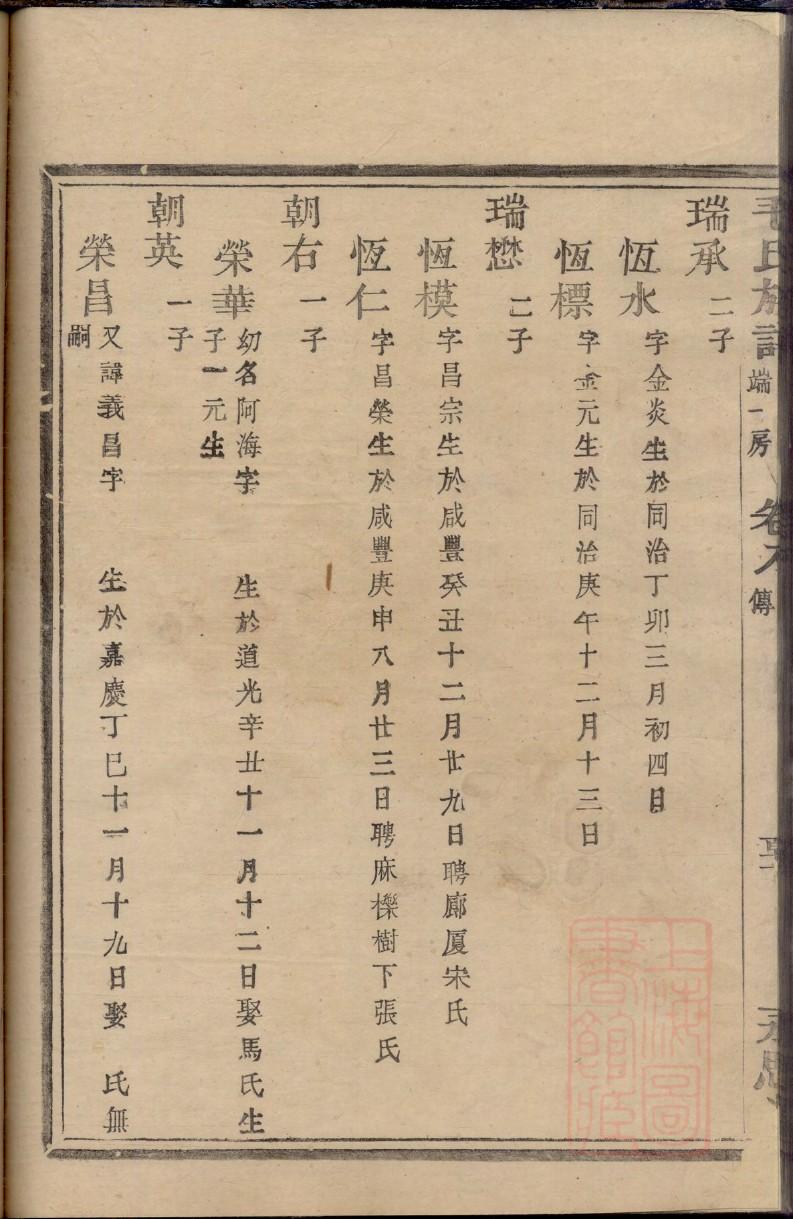 毛氏族譜 端一房 卷八 傳
瑞承 二子
恆水 字金炎生於同治丁卯三月初四日
恆標 字金元生於同治庚午十二月十三日
瑞懋 二子
恆模 字昌宗生於咸豐癸丑十二月廿九日聘廊厦宋氏
恆仁 字昌榮生於咸豐庚申八月廿三日聘麻櫟樹下張氏
朝右 一子
榮華 幼名阿海字 生於道光辛丑十一月十二日娶馬氏生
子一元生
朝英 一子
榮昌 又諱義昌字 生於嘉慶丁巳十一月十九日娶 氏無
嗣
上海圖
書館藏